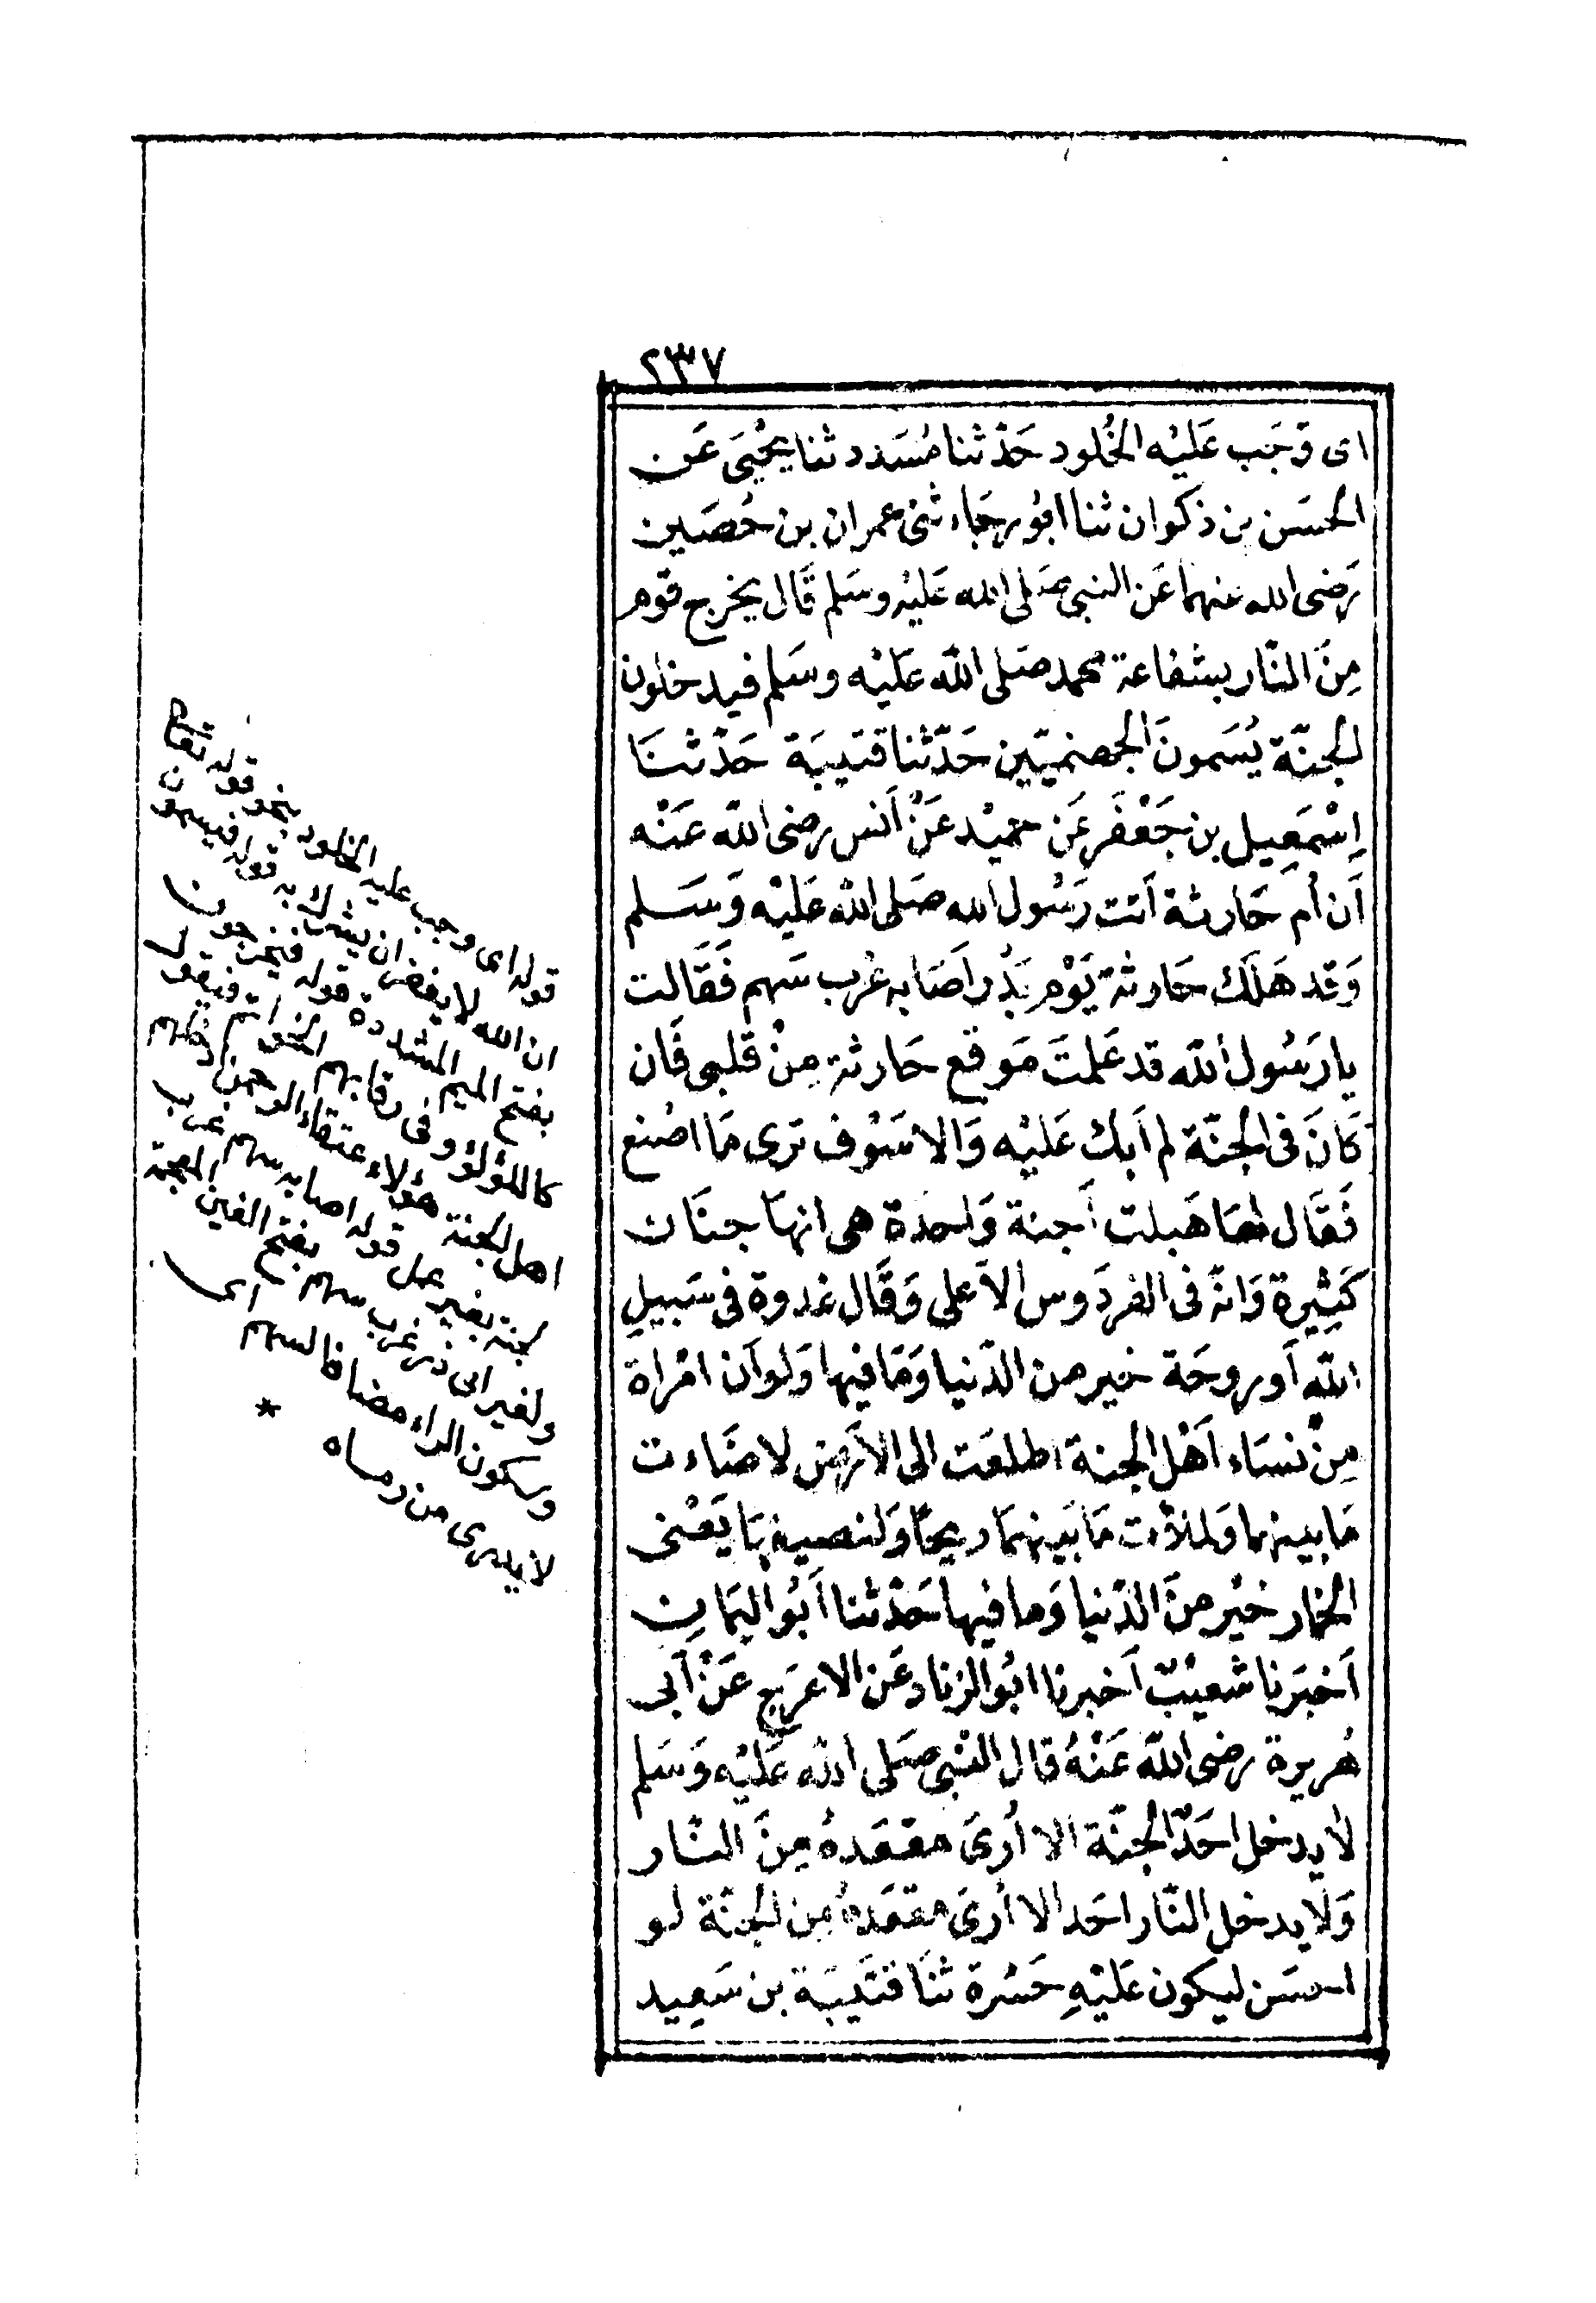 ٢٣٧
اى وَجَب عَلَيْه الخُلود حَدّثنا مُسَدد ثنا يَحْيَى عَن
الحسَن بن ذكوان ثنا ابوُرجَاء ثنى عمران بن حُصَين
رَضى الله عنهما عَن النبى صَلى الله عَليْه وسَلم قَال يخرج قوم
مِنَ النّار بشفاعة محمد صَلى الله عَليْه وسَلم فيدخلون
الجنّة يُسَمونَ الجهنميّين حَدّثنا قتيبَة حَدّثنَا
اِسْمَعِيل بن جَعْفَر عَن حميْد عَنْ اَنس رضى الله عَنْه
اَن اُم حَارثة اَتت رَسُول الله صَلى الله عَليْه وَسَلم
وَقد هَلَك حَارثة يَوْم بَدْر اَصَابه غرب سَهم فَقَالت
يا رَسُول الله قد عَلمتَ مَوقع حَارثة مِنْ قلبى فَان
كَانَ فى الجنّة لم اَبك عَليْه وَالا سَوْف ترى مَا اصْنع
فَقَال لهَا هَبلت اَجنة وَاحدة هى انهَا جنَان
كَثِيرة وَانّه فى الفردَوس الاَعلى وَقَال غدوة فى سَبيلِ
الله اَو روحَة خير من الدّنيا وَمَا فيها وَلو اَن امْراة
مِنْ نسَاء اَهْل الجنة اطلعَت الى الاَرض لاضَاءت
مَا بينهما وَلملأت مَا بَينهمَا ريحًا وَلنصيفهَا يَعْنى
الخمار خيْر منَ الدّنيا وَما فيها حَدّثنا اَبُو اليمَانِ
اَخبَرنا شعيْبٌ اَخبرنا ابُو الزناد عَن الاعرَج عَنْ اَبى
هُريرة رضى الله عَنْهُ قال النّبى صَلى الله عَليْه وَسَلم
لَا يدخل احَدٌ الجنّة الا اُرىَ مقعَدهُ مِنَ النّار
وَلَا يدخل النّار احَد الا اُرىَ مقعَدهُ مِن الجنّة لو
احسَن ليكون عَليْهِ حَسْرة ثنَا قتَيبَة بن سَعِيد
قوله اى وجب عليه الخلود نحو قوله تعالى
ان الله لا يغفر ان يشرك به قوله فيسمون
بفتح الميم المشددة قوله فيخرجون
كاللؤلؤ وفى رقابهم الخواتم فيقول
اهل الجنة هؤلاء عتقاء الرحمن ادخلهم
الجنة بغير عمل قوله اصابه سهم غرب
ولغير ابى ذر غرب سهم بفتح الغين المعجمة
وسكون الراء مضافا لسهم اى
لا يدرى من رماه *